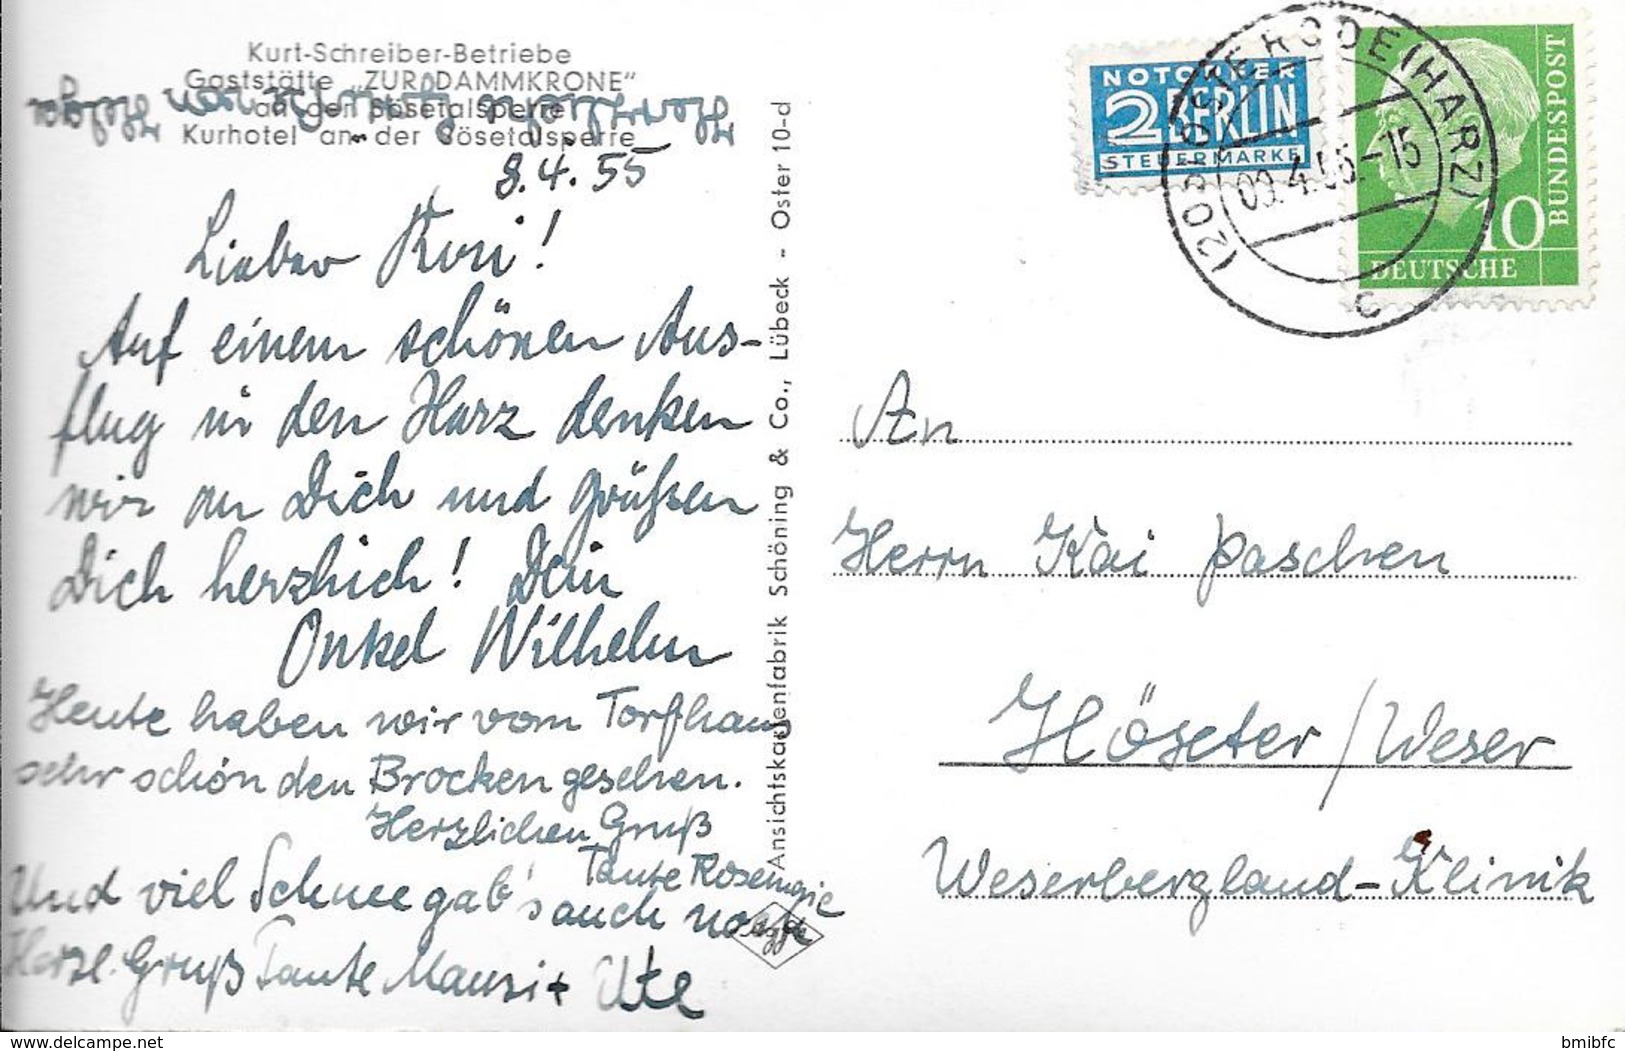 Kurt-Schreiber-Betriebe
Gaststätte „ZUR DAMMKRONE”
an der Sösetalsperre
Kurhotel an der Sösetalsperre
8.4.55
Lieber Kai!
Auf einem schönen Aus-
flug in den Harz denken
wir an Dich und grüßen
Dich herzlich! Dein
Onkel Wilhelm
Heute haben wir vom Torfhaus
sehr schön den Brocken gesehen.
Herzlichen Gruß
Tante Rosemarie
Und viel Schnee gab's auch noch
Herzl. Gruß Tante Mausi + Ute
Ansichtskartenfabrik Schöning & Co., Lübeck - Oster 10-d
NOTOPFER
2 BERLIN
STEUERMARKE
(20b) OSTERODE (HARZ)
09.4.55.-15
c
BUNDESPOST
10
DEUTSCHE
An
Herrn Kai Paschen
Höxter/Weser
Weserbergland-Klinik
bmibfc